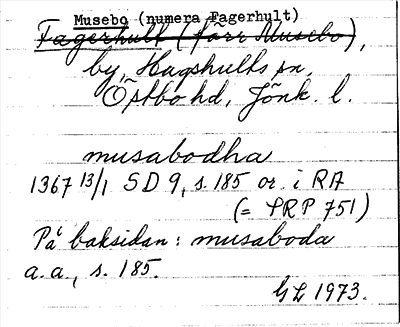 Musebo (numera Fagerhult)
Fagerhult (förr Musebo),
by, Hagshults sn,
Östbo hd, Jönk. l.
musabodha
1367 13/1 SD 9, s. 185 or. i RA
(= PRP 751)
På baksidan: musaboda
a.a., s. 185.
GL 1973.